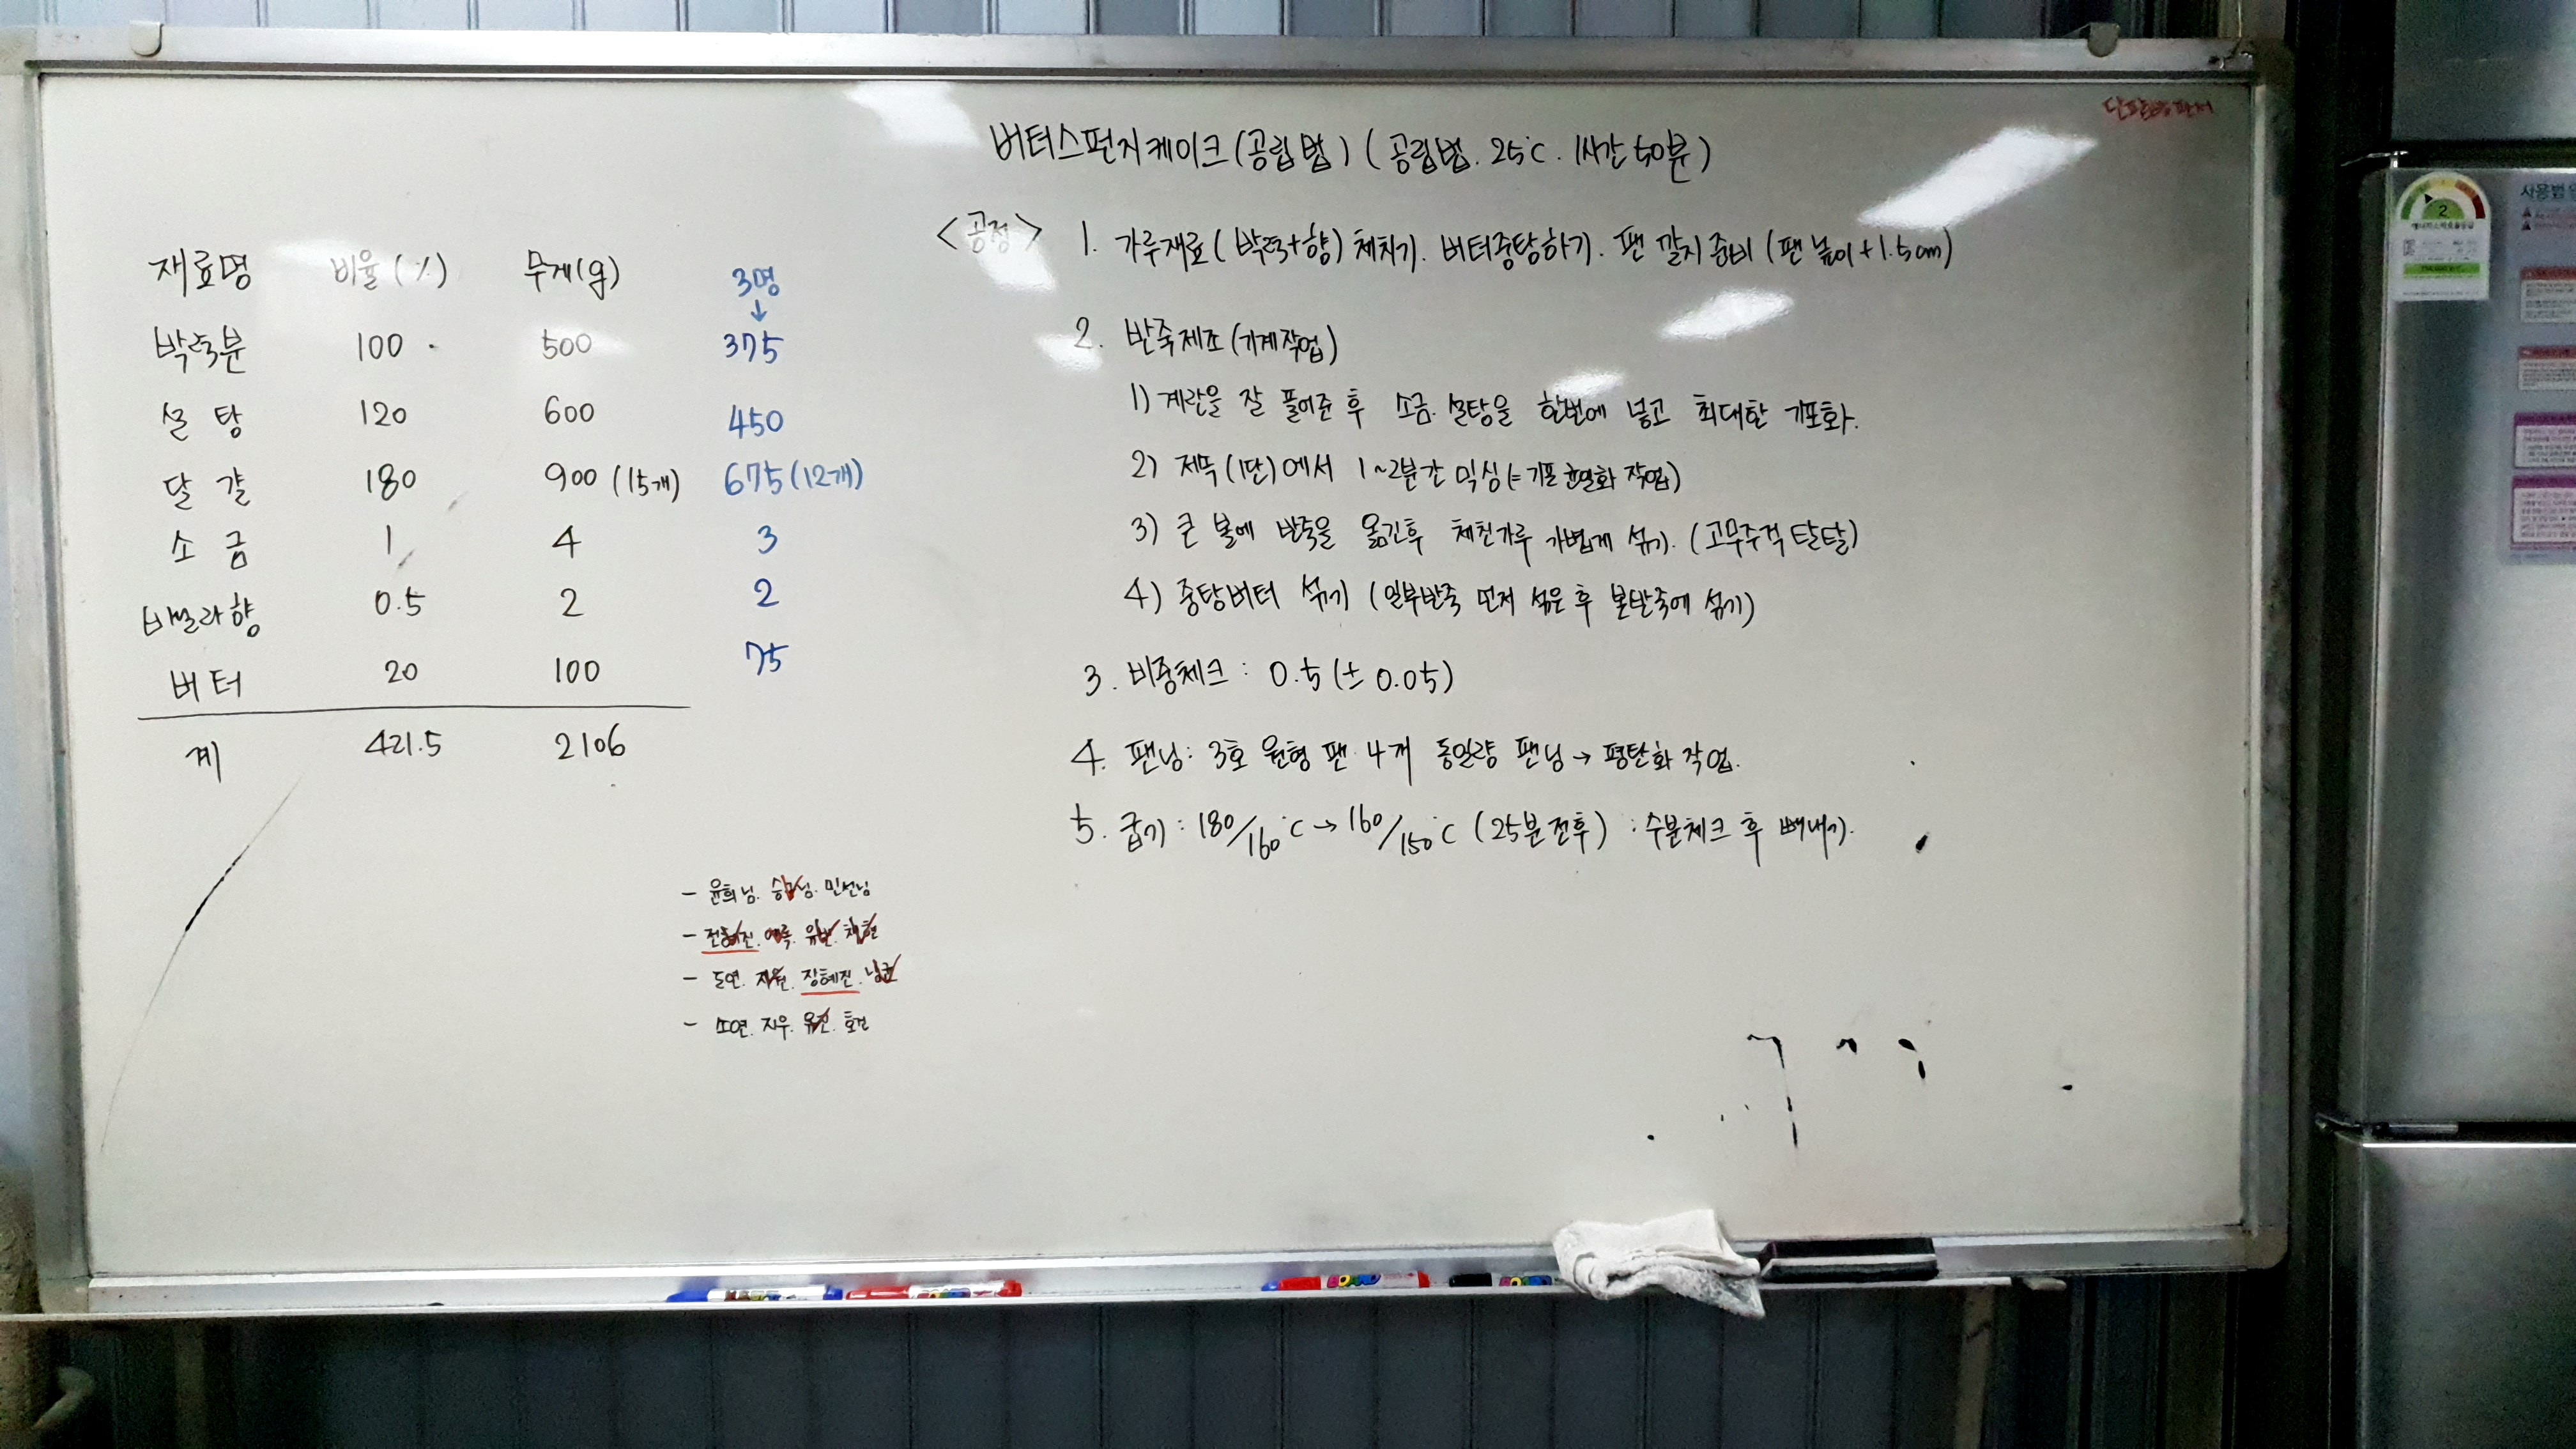 버터스펀지케이크(공립법) (공립법. 25℃. 1시간 50분)
재료명 비율(%) 무게(g) 3명
↓
박력분 100 500 375
설탕 120 600 450
달걀 180 900 (15개) 675 (12개)
소금 1 4 3
바닐라향 0.5 2 2
버터 20 100 75
계 421.5 2106
<공정> 1. 가루재료(박력+향) 체치기. 버터중탕하기. 팬 깔지 준비 (팬 높이+1.5cm)
2. 반죽제조(기계작업)
1) 계란을 잘 풀어준 후 소금. 설탕을 한번에 넣고 최대한 기포화.
2) 저속(1단)에서 1~2분간 믹싱(=기포 균일화 작업)
3) 큰 볼에 반죽을 옮긴후 체친가루 가볍게 섞기. (고무주걱 탈탈)
4) 중탕버터 섞기 (일부반죽 먼저 섞은 후 본반죽에 섞기)
3. 비중체크 : 0.5(±0.05)
4. 팬닝 : 3호 원형 팬 4개 동일량 팬닝 → 평탄화 작업.
5. 굽기 : 180/160℃ → 160/150℃ (25분 전후) : 수분체크 후 빼내기.
- 윤희님. 민선님
- 도연. 장혜진.
- 소연. 지우. 유진.
BOARD
BOARD
2
사용법